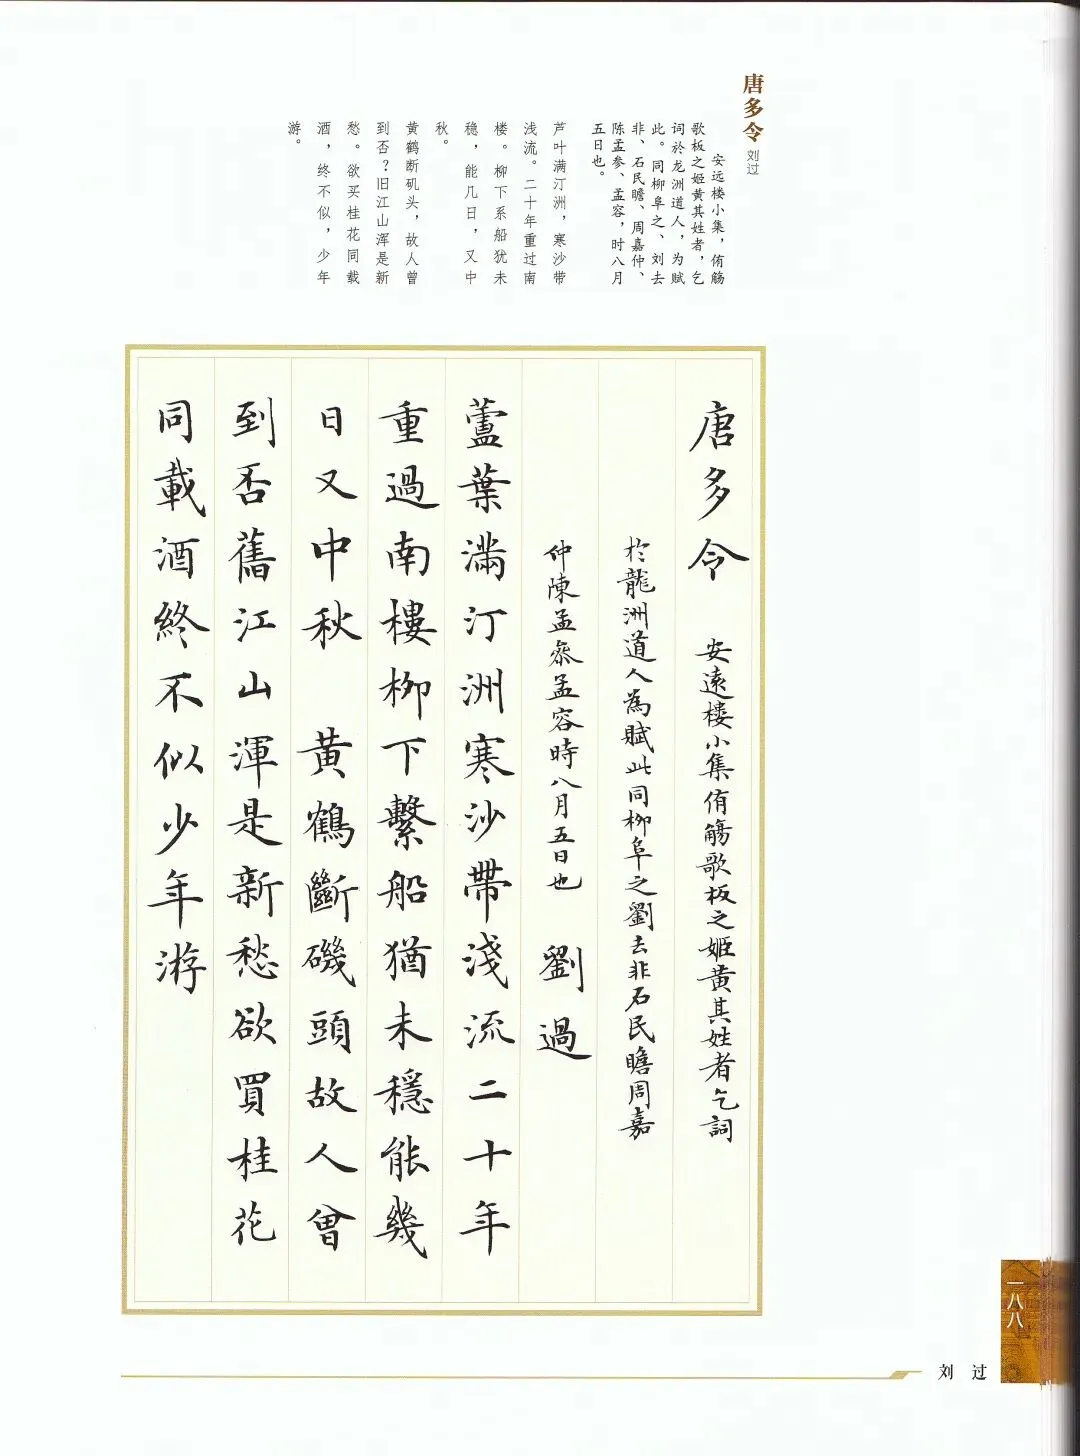 唐多令
刘过
安远楼小集，侑觞
歌板之姬黄其姓者，乞
词於龙洲道人，为赋
此。同柳阜之、刘去
非、石民瞻、周嘉仲、
陈孟参、孟容，时八月
五日也。
芦叶满汀洲，寒沙带
浅流。二十年重过南
楼。柳下系船犹未
稳，能几日，又中
秋。
黄鹤断矶头，故人曾
到否？旧江山浑是新
愁。欲买桂花同载
酒，终不似，少年
游。
唐多令 安遠樓小集侑觴歌板之姬黄其姓者乞詞
於龍洲道人為賦此同柳阜之劉去非石民瞻周嘉
仲陳孟叅孟容時八月五日也 劉過
蘆葉滿汀洲寒沙帶淺流二十年
重過南樓柳下繫船猶未穩能幾
日又中秋 黄鶴斷磯頭故人曾
到否舊江山渾是新愁欲買桂花
同載酒終不似少年游
一八八
刘过